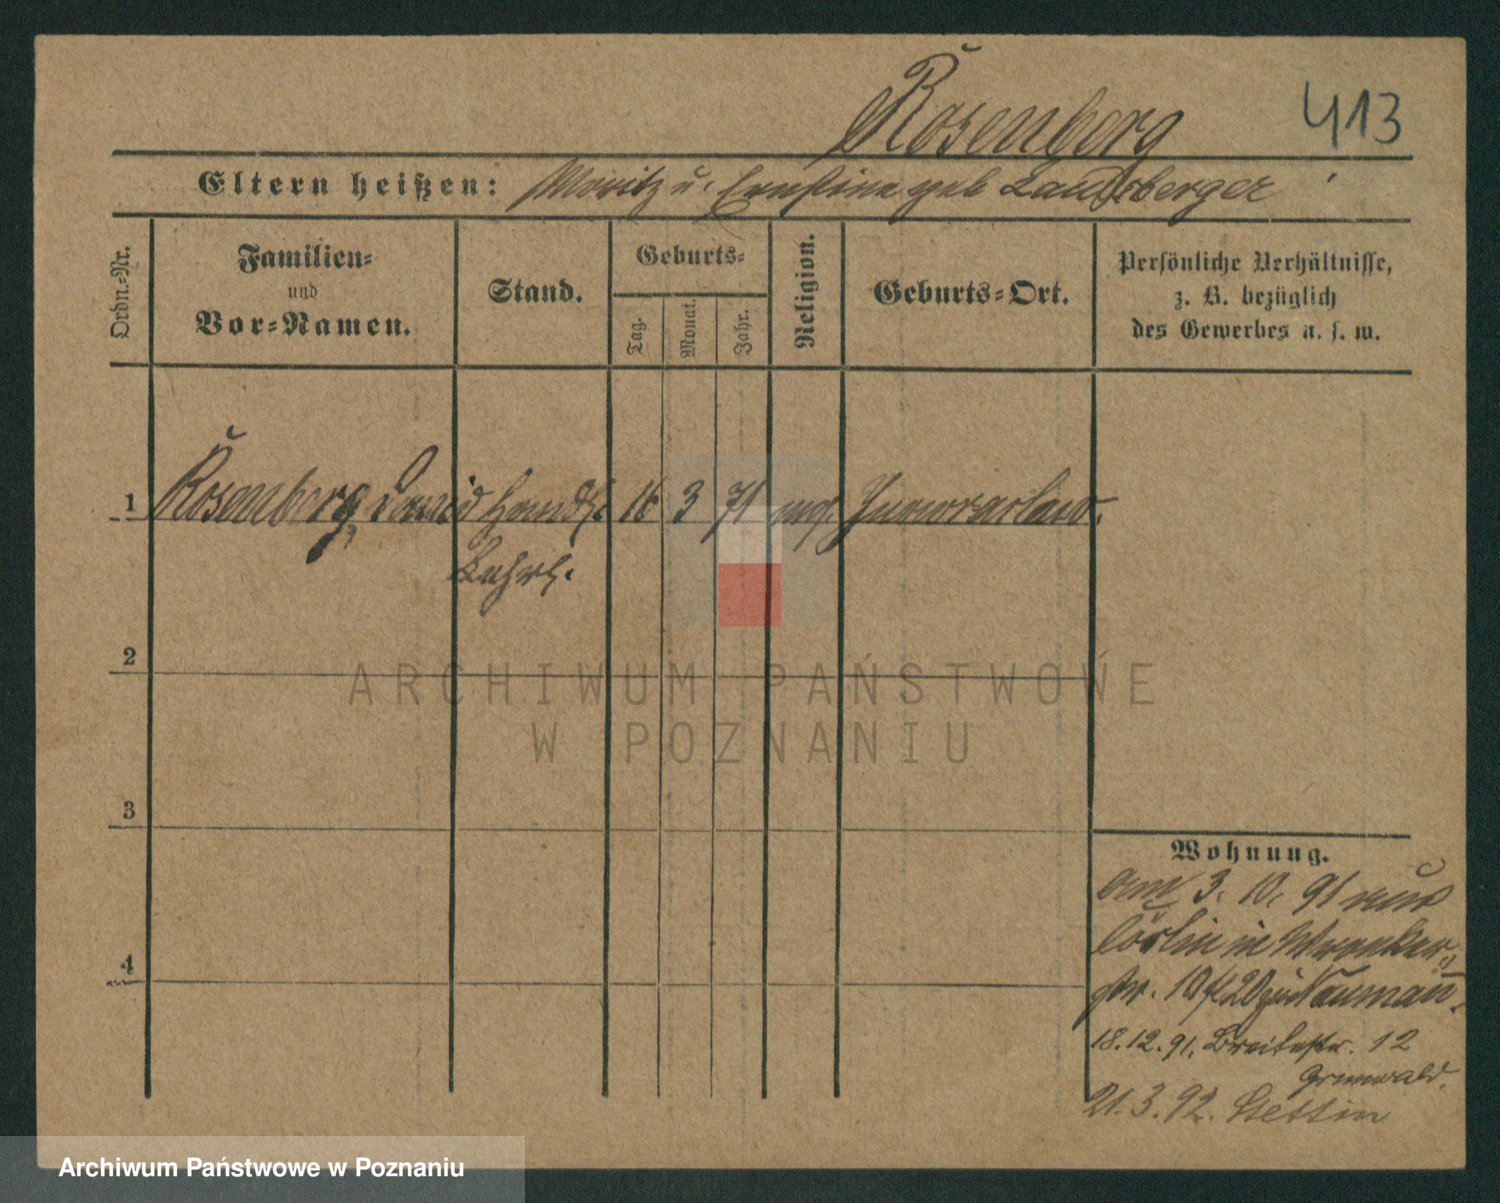 Rosenberg
413
Eltern heißen: Moritz u. Ernstine geb Landsberger
Ordn.-Nr.
Familien-
und
Vor-Namen.
Stand.
Geburts-
Tag.
Monat.
Jahr.
Religion.
Geburts-Ort.
Persönliche Verhältnisse,
z. B. bezüglich
des Gewerbes u. s. w.
1 Rosenberg David Handl. 16 3 71 mos. Inowrazlaw.
Lehrl.
2
ARCHIWUM PAŃSTWOWE
W POZNANIU
3
Wohnung.
am 3. 10. 91 aus
Cörlin in Wronker
str. 10 zu Nauman.
4
18.12.91. Breitestr. 12
Grunwald.
21.3.92. Stettin
Archiwum Państwowe w Poznaniu